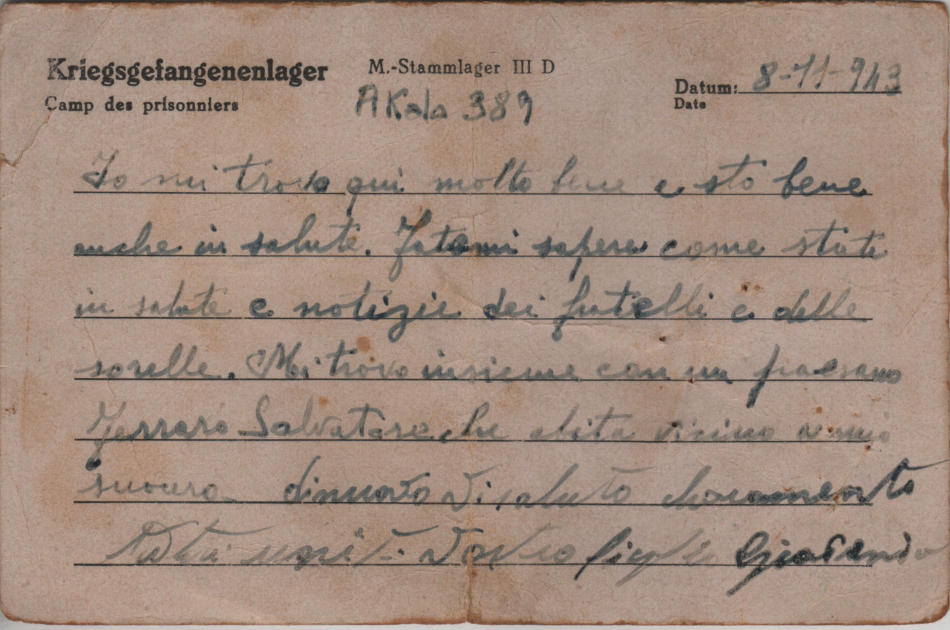 Kriegsgefangenenlager M.-Stammlager III D Datum: 8-11-943
Camp des prisonniers AKdo 389 Date
Io mi trovo qui molto bene e sto bene
anche in salute. Fatemi sapere come state
in salute e notizie dei fratelli e delle
sorelle. Mi trovo insieme con un paesano
Ferraro Salvatore che abita vicino a mio
suocero dinuovo vi saluto
vostro figlio